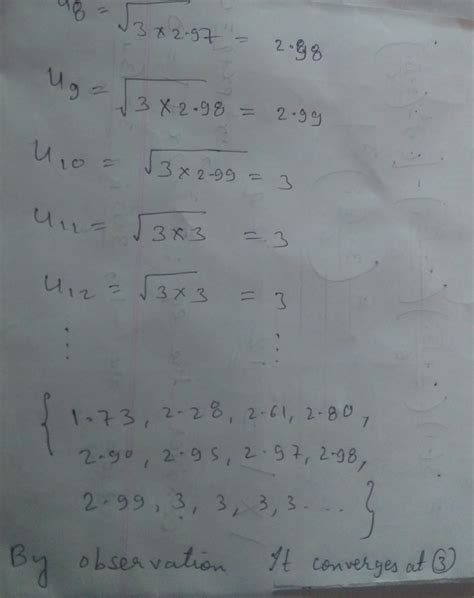 u8 = √3×2.97 = 2.98
u9 = √3×2.98 = 2.99
u10 = √3×2.99 = 3
u11 = √3×3 = 3
u12 = √3×3 = 3
⋮ ⋮
{1.73, 2.28, 2.61, 2.80,
2.90, 2.95, 2.97, 2.98,
2.99, 3, 3, 3, 3 ....}
By observation It converges at ③